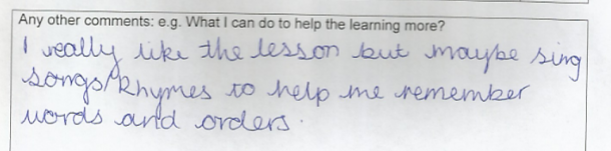 Any other comments: e.g. What I can do to help the learning more?
I really like the lesson but maybe sing
songs/Rhymes to help me remember
words and orders.